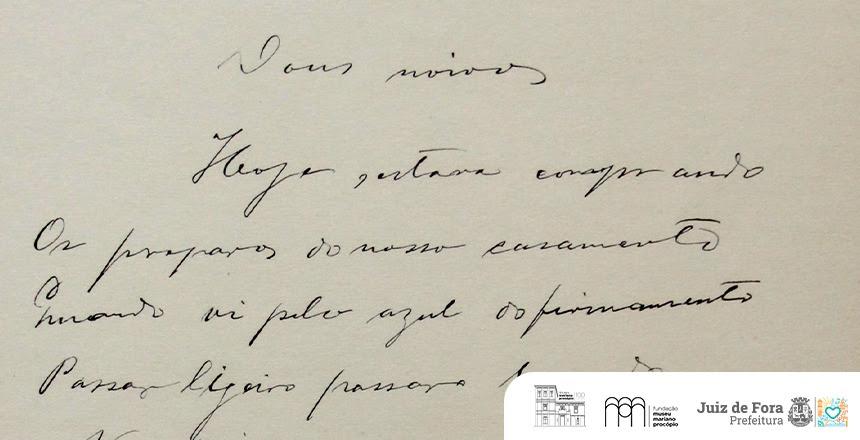 Dous noivos
Hoje, estava comprando
Os preparos do nosso casamento
Quando vi pelo azul do firmamento
Passar ligeiro passaro
fundação
museu
mariano
procópio
Juiz de Fora
Prefeitura